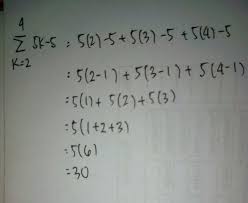 4
∑ 5k-5 = 5(2)-5+5(3)-5+5(4)-5
K=2
= 5(2-1)+5(3-1)+5(4-1)
= 5(1)+5(2)+5(3)
= 5(1+2+3)
= 5(6)
= 30